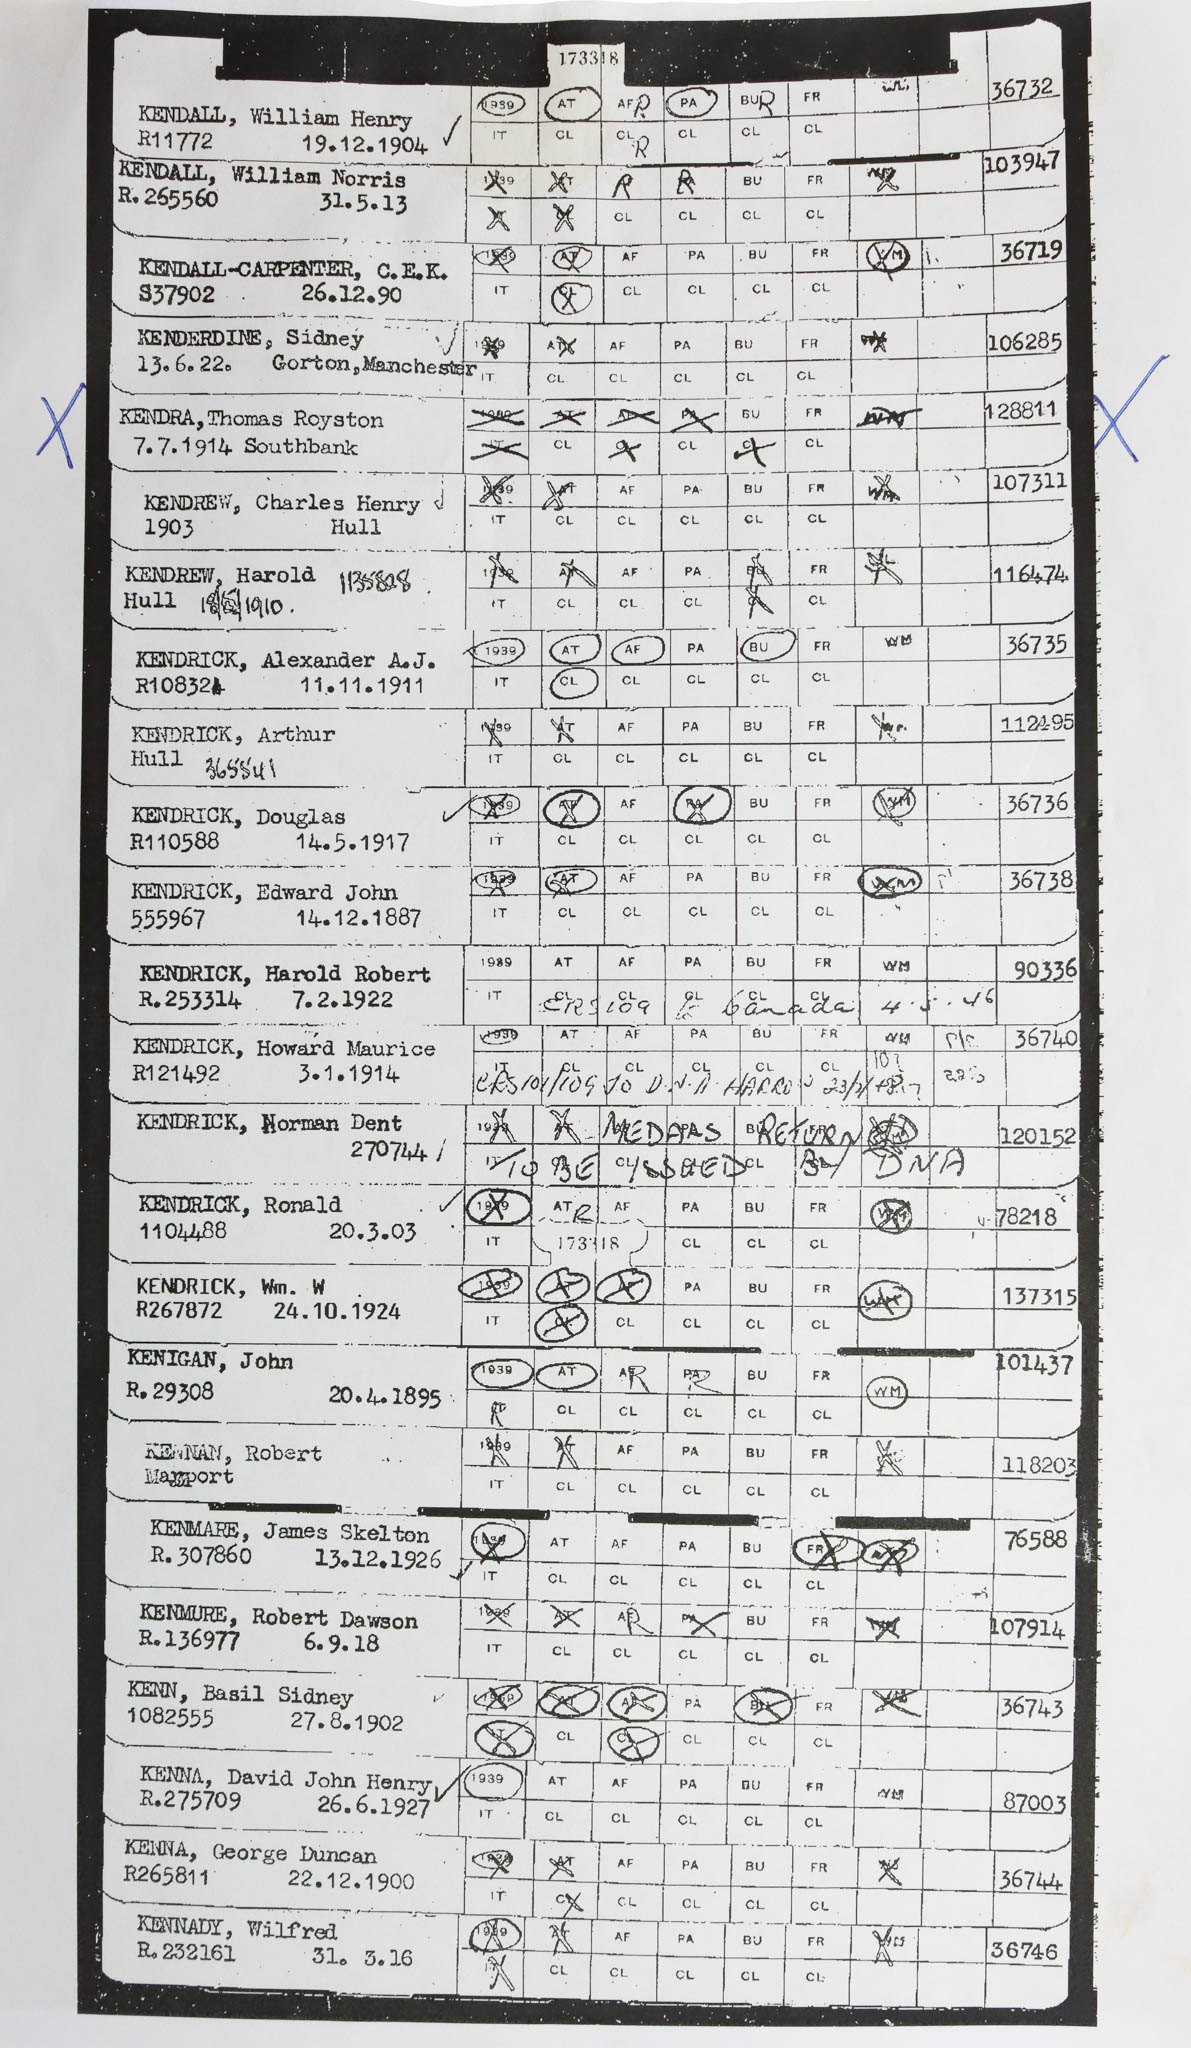 173318
1939 AT AF R PA BU R FR WM 36732
KENDALL, William Henry
IT CL CL R CL CL CL
R11772 19.12.1904
KENDALL, William Norris 1939 AT R R BU FR WM 103947
R.265560 31.5.13 IT CL CL CL CL CL
KENDALL-CARPENTER, C.E.K. 1939 AT AF PA BU FR WM 36719
S37902 26.12.90 IT CL CL CL CL CL
KENDERDINE, Sidney 1939 AT AF PA BU FR WM 106285
13.6.22. Gorton, Manchester IT CL CL CL CL CL
X KENDRA, Thomas Royston 1939 AT AF PA BU FR WM 128811 X
7.7.1914 Southbank IT CL CL CL CL CL
KENDREW, Charles Henry 1939 AT AF PA BU FR WM 107311
1903 Hull IT CL CL CL CL CL
KENDREW, Harold 1135828 1939 AT AF PA BU FR 116474
Hull 1910. IT CL CL CL CL CL
KENDRICK, Alexander A.J. 1939 AT AF PA BU FR WM 36735
R108324 11.11.1911 IT CL CL CL CL CL
KENDRICK, Arthur 1939 AT AF PA BU FR 112495
Hull 365541 IT CL CL CL CL CL
KENDRICK, Douglas 1939 AT AF PA BU FR WM 36736
R110588 14.5.1917 IT CL CL CL CL CL
KENDRICK, Edward John 1939 AT AF PA BU FR WM 36738
555967 14.12.1887 IT CL CL CL CL CL
KENDRICK, Harold Robert 1939 AT AF PA BU FR WM 90336
R.253314 7.2.1922 IT CL CL CL CL CL
CRS 109 Canada 4.5.46
KENDRICK, Howard Maurice 1939 AT AF PA BU FR WM 36740
R121492 3.1.1914 IT CL CL CL CL CL
CRS 101/109 TO D.N.A HARROW
KENDRICK, Norman Dent 1939 AT MEDALS RETURN 120152
270744 IT TO BE ISSUED BY DNA
KENDRICK, Ronald 1939 AT R AF PA BU FR WM 78218
1104488 20.3.03 IT 173318 CL CL CL
KENDRICK, Wm. W 1939 AT AF PA BU FR WM 137315
R267872 24.10.1924 IT CL CL CL CL CL
KENIGAN, John 1939 AT AF R PA R BU FR WM 101437
R.29308 20.4.1895 IT R CL CL CL CL CL
KENNAN, Robert 1939 AT AF PA BU FR 118203
Maryport IT CL CL CL CL CL
KENMARE, James Skelton 1939 AT AF PA BU FR WM 76588
R.307860 13.12.1926 IT CL CL CL CL CL
KENMURE, Robert Dawson 1939 AT AF R PA BU FR WM 107914
R.136977 6.9.18 IT CL CL CL CL CL
KENN, Basil Sidney 1939 AT AF PA BU FR WM 36743
1082555 27.8.1902 IT CL CL CL CL CL
KENNA, David John Henry 1939 AT AF PA BU FR WM 87003
R.275709 26.6.1927 IT CL CL CL CL CL
KENNA, George Duncan 1939 AT AF PA BU FR 36744
R265811 22.12.1900 IT CL CL CL CL CL
KENNADY, Wilfred 1939 AT AF PA BU FR WM 36746
R.232161 31. 3.16 IT CL CL CL CL CL